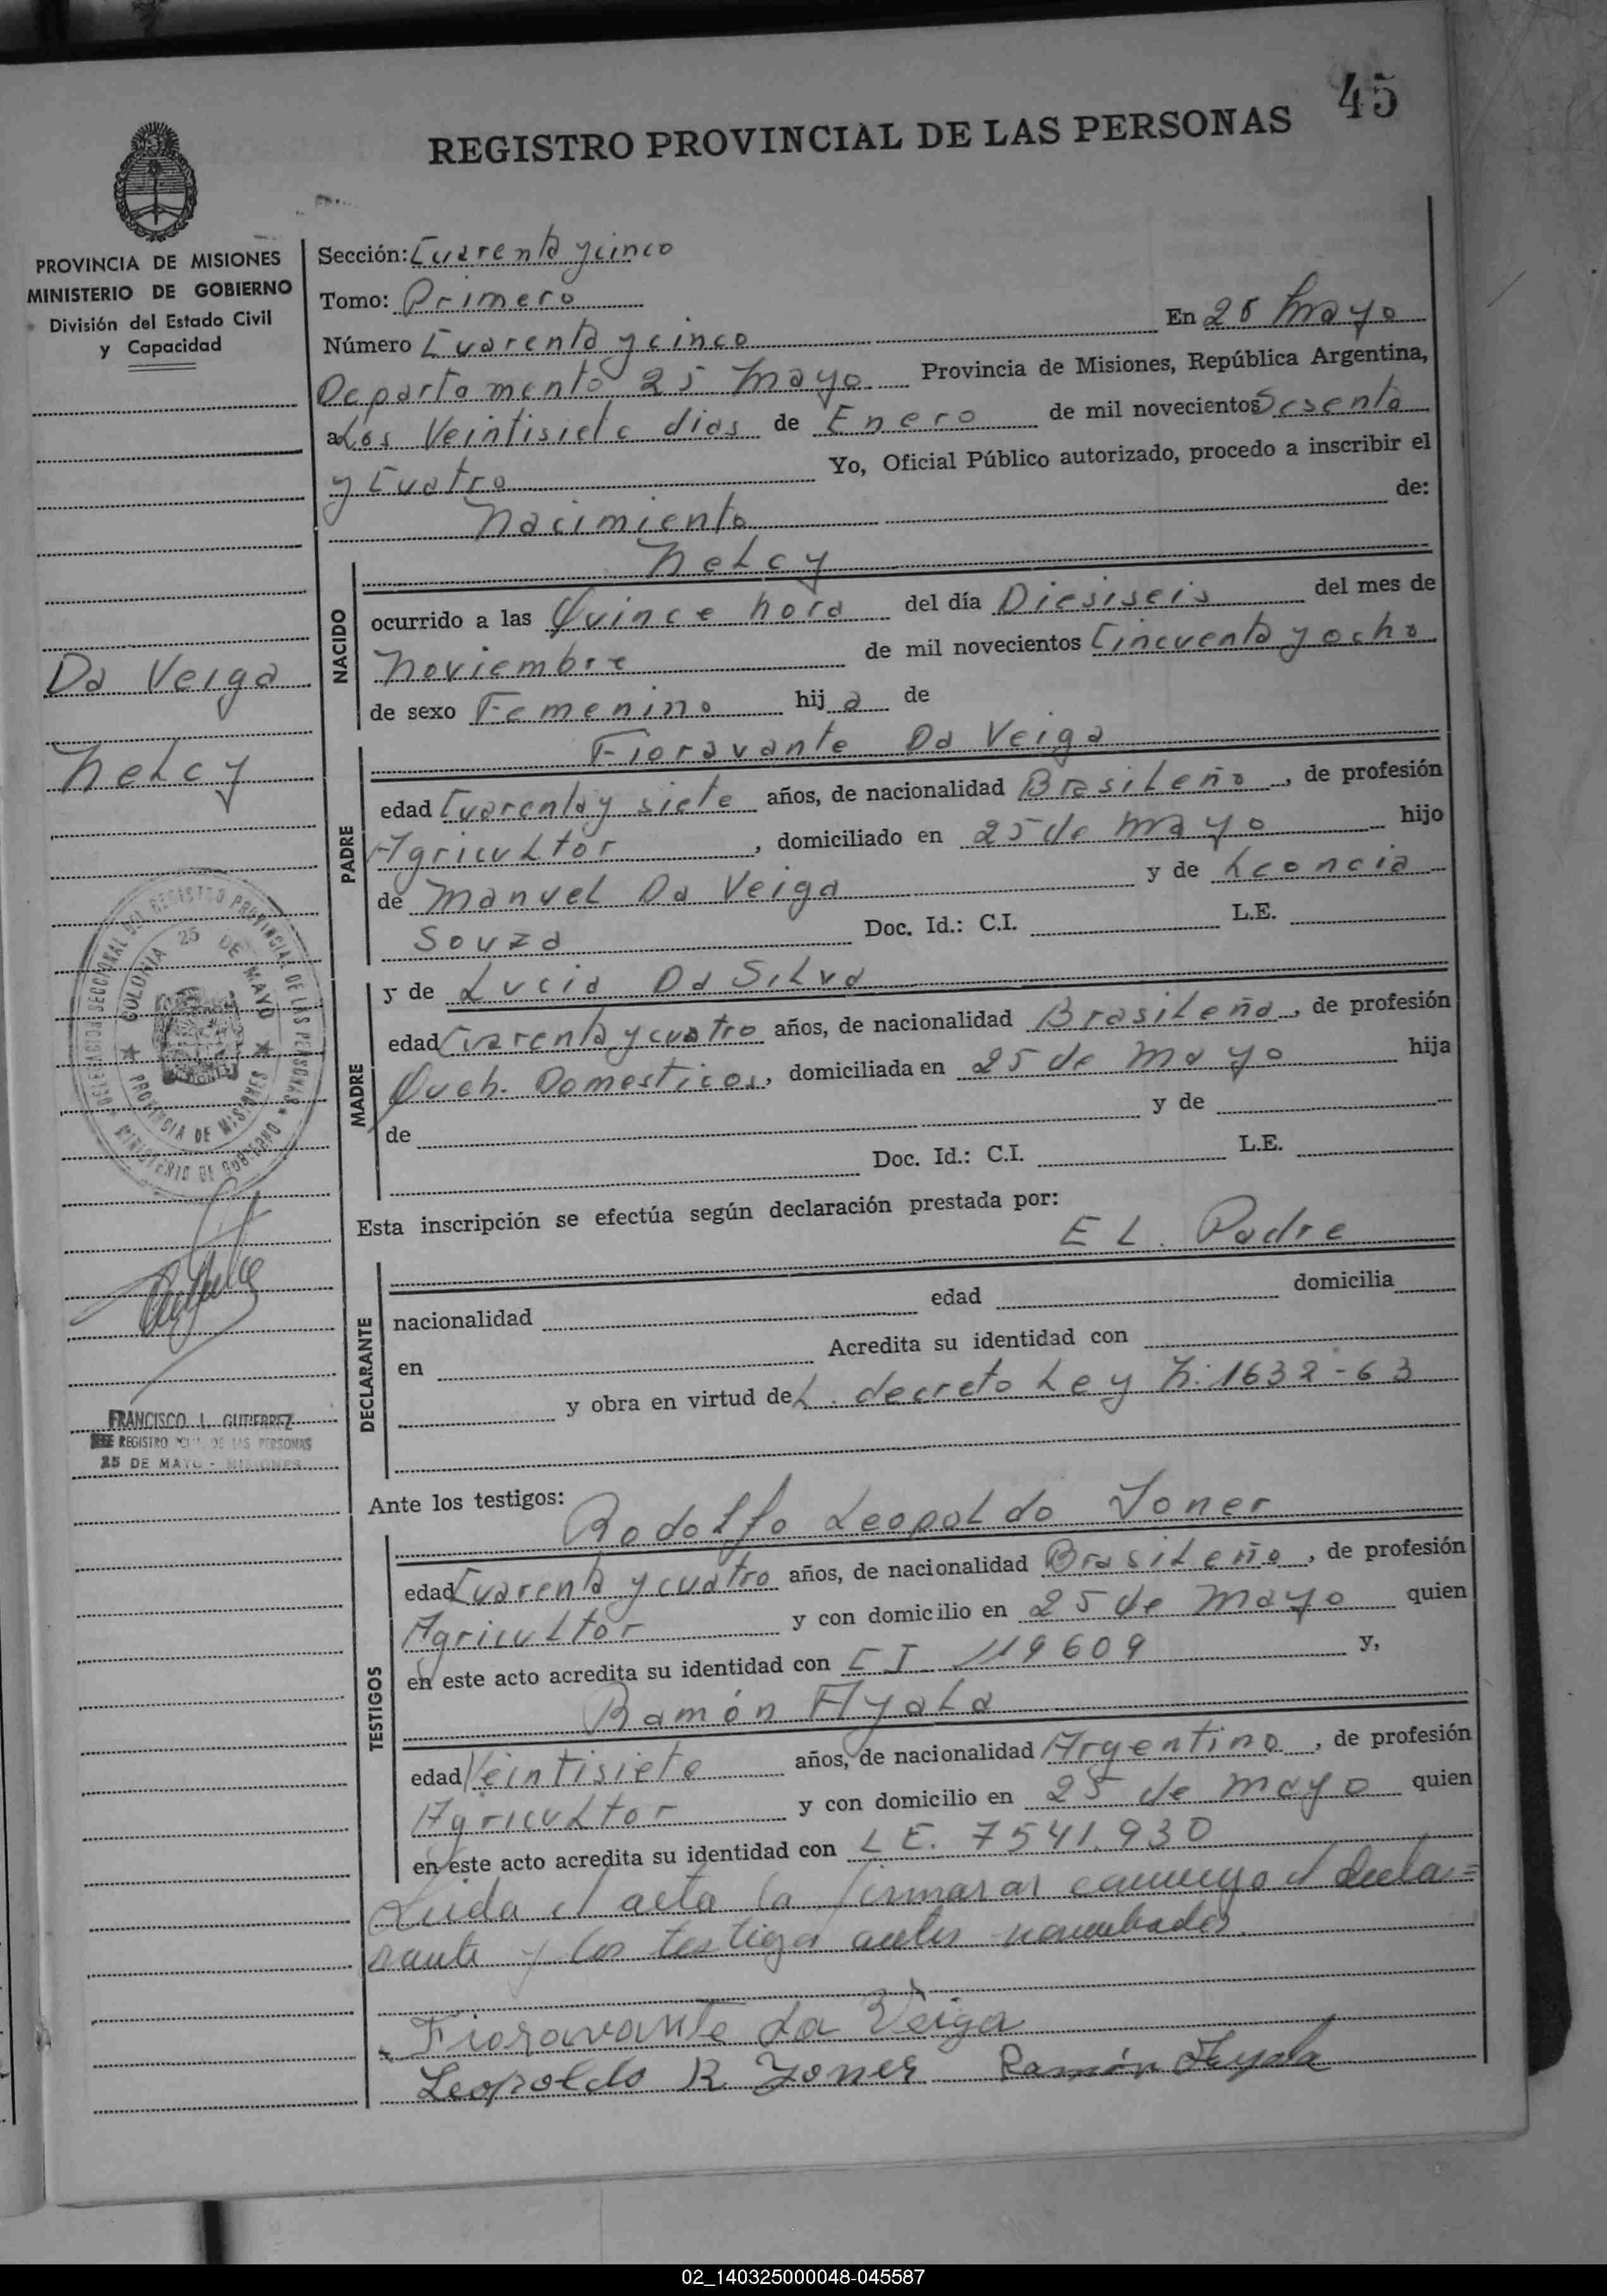 45
REGISTRO PROVINCIAL DE LAS PERSONAS
PROVINCIA DE MISIONES
MINISTERIO DE GOBIERNO
División del Estado Civil
y Capacidad
Da Veiga
Nelcy
DELEGACION SECCIONAL DEL REGISTRO PROVINCIAL DE LAS PERSONAS * MINISTERIO DE GOBIERNO
COLONIA 25 DE MAYO * PROVINCIA DE MISIONES *
FRANCISCO L. GUTIERREZ
REGISTRO DE LAS PERSONAS
25 DE MAYO - MISIONES
Sección: Cuarenta y cinco
Tomo: Primero
Número Cuarenta y cinco En 25 Mayo
Departamento 25 Mayo Provincia de Misiones, República Argentina,
a Los Veintisiete dias de Enero de mil novecientos Sesenta
y Cuatro Yo, Oficial Público autorizado, procedo a inscribir el
Nacimiento de:
NACIDO
Nelcy
ocurrido a las Quince hora del día Diesiseis del mes de
Noviembre de mil novecientos Cincuenta y ocho
de sexo Femenino hij a de
PADRE
Fioravante Da Veiga
edad Cuarenta y siete años, de nacionalidad Brasileño, de profesión
Agricultor, domiciliado en 25 de Mayo hijo
de Manuel Da Veiga y de Leoncia
Souza Doc. Id.: C.I. L.E.
MADRE
y de Lucia Da Silva
edad Cuarenta y cuatro años, de nacionalidad Brasileña, de profesión
Queh. Domesticos, domiciliada en 25 de Mayo hija
de y de
Doc. Id.: C.I. L.E.
Esta inscripción se efectúa según declaración prestada por:
EL. Padre
DECLARANTE
nacionalidad edad domicilia
en Acredita su identidad con
y obra en virtud de L. decreto Ley N: 1632-63
Ante los testigos:
TESTIGOS
Rodolfo Leopoldo Joner
edad Cuarenta y cuatro años, de nacionalidad Brasileño, de profesión
Agricultor y con domicilio en 25 de Mayo quien
en este acto acredita su identidad con C I 119609 y,
Ramón Ayala
edad Veintisiete años, de nacionalidad Argentino, de profesión
Agricultor y con domicilio en 25 de Mayo quien
en este acto acredita su identidad con L E. 7541.930
Leida el acta la firmaran conmigo el decla=
rante y los testigos antes nombrados.
Fioravante da Veiga
Leopoldo R Joner Ramón Ayala
02_140325000048-045587